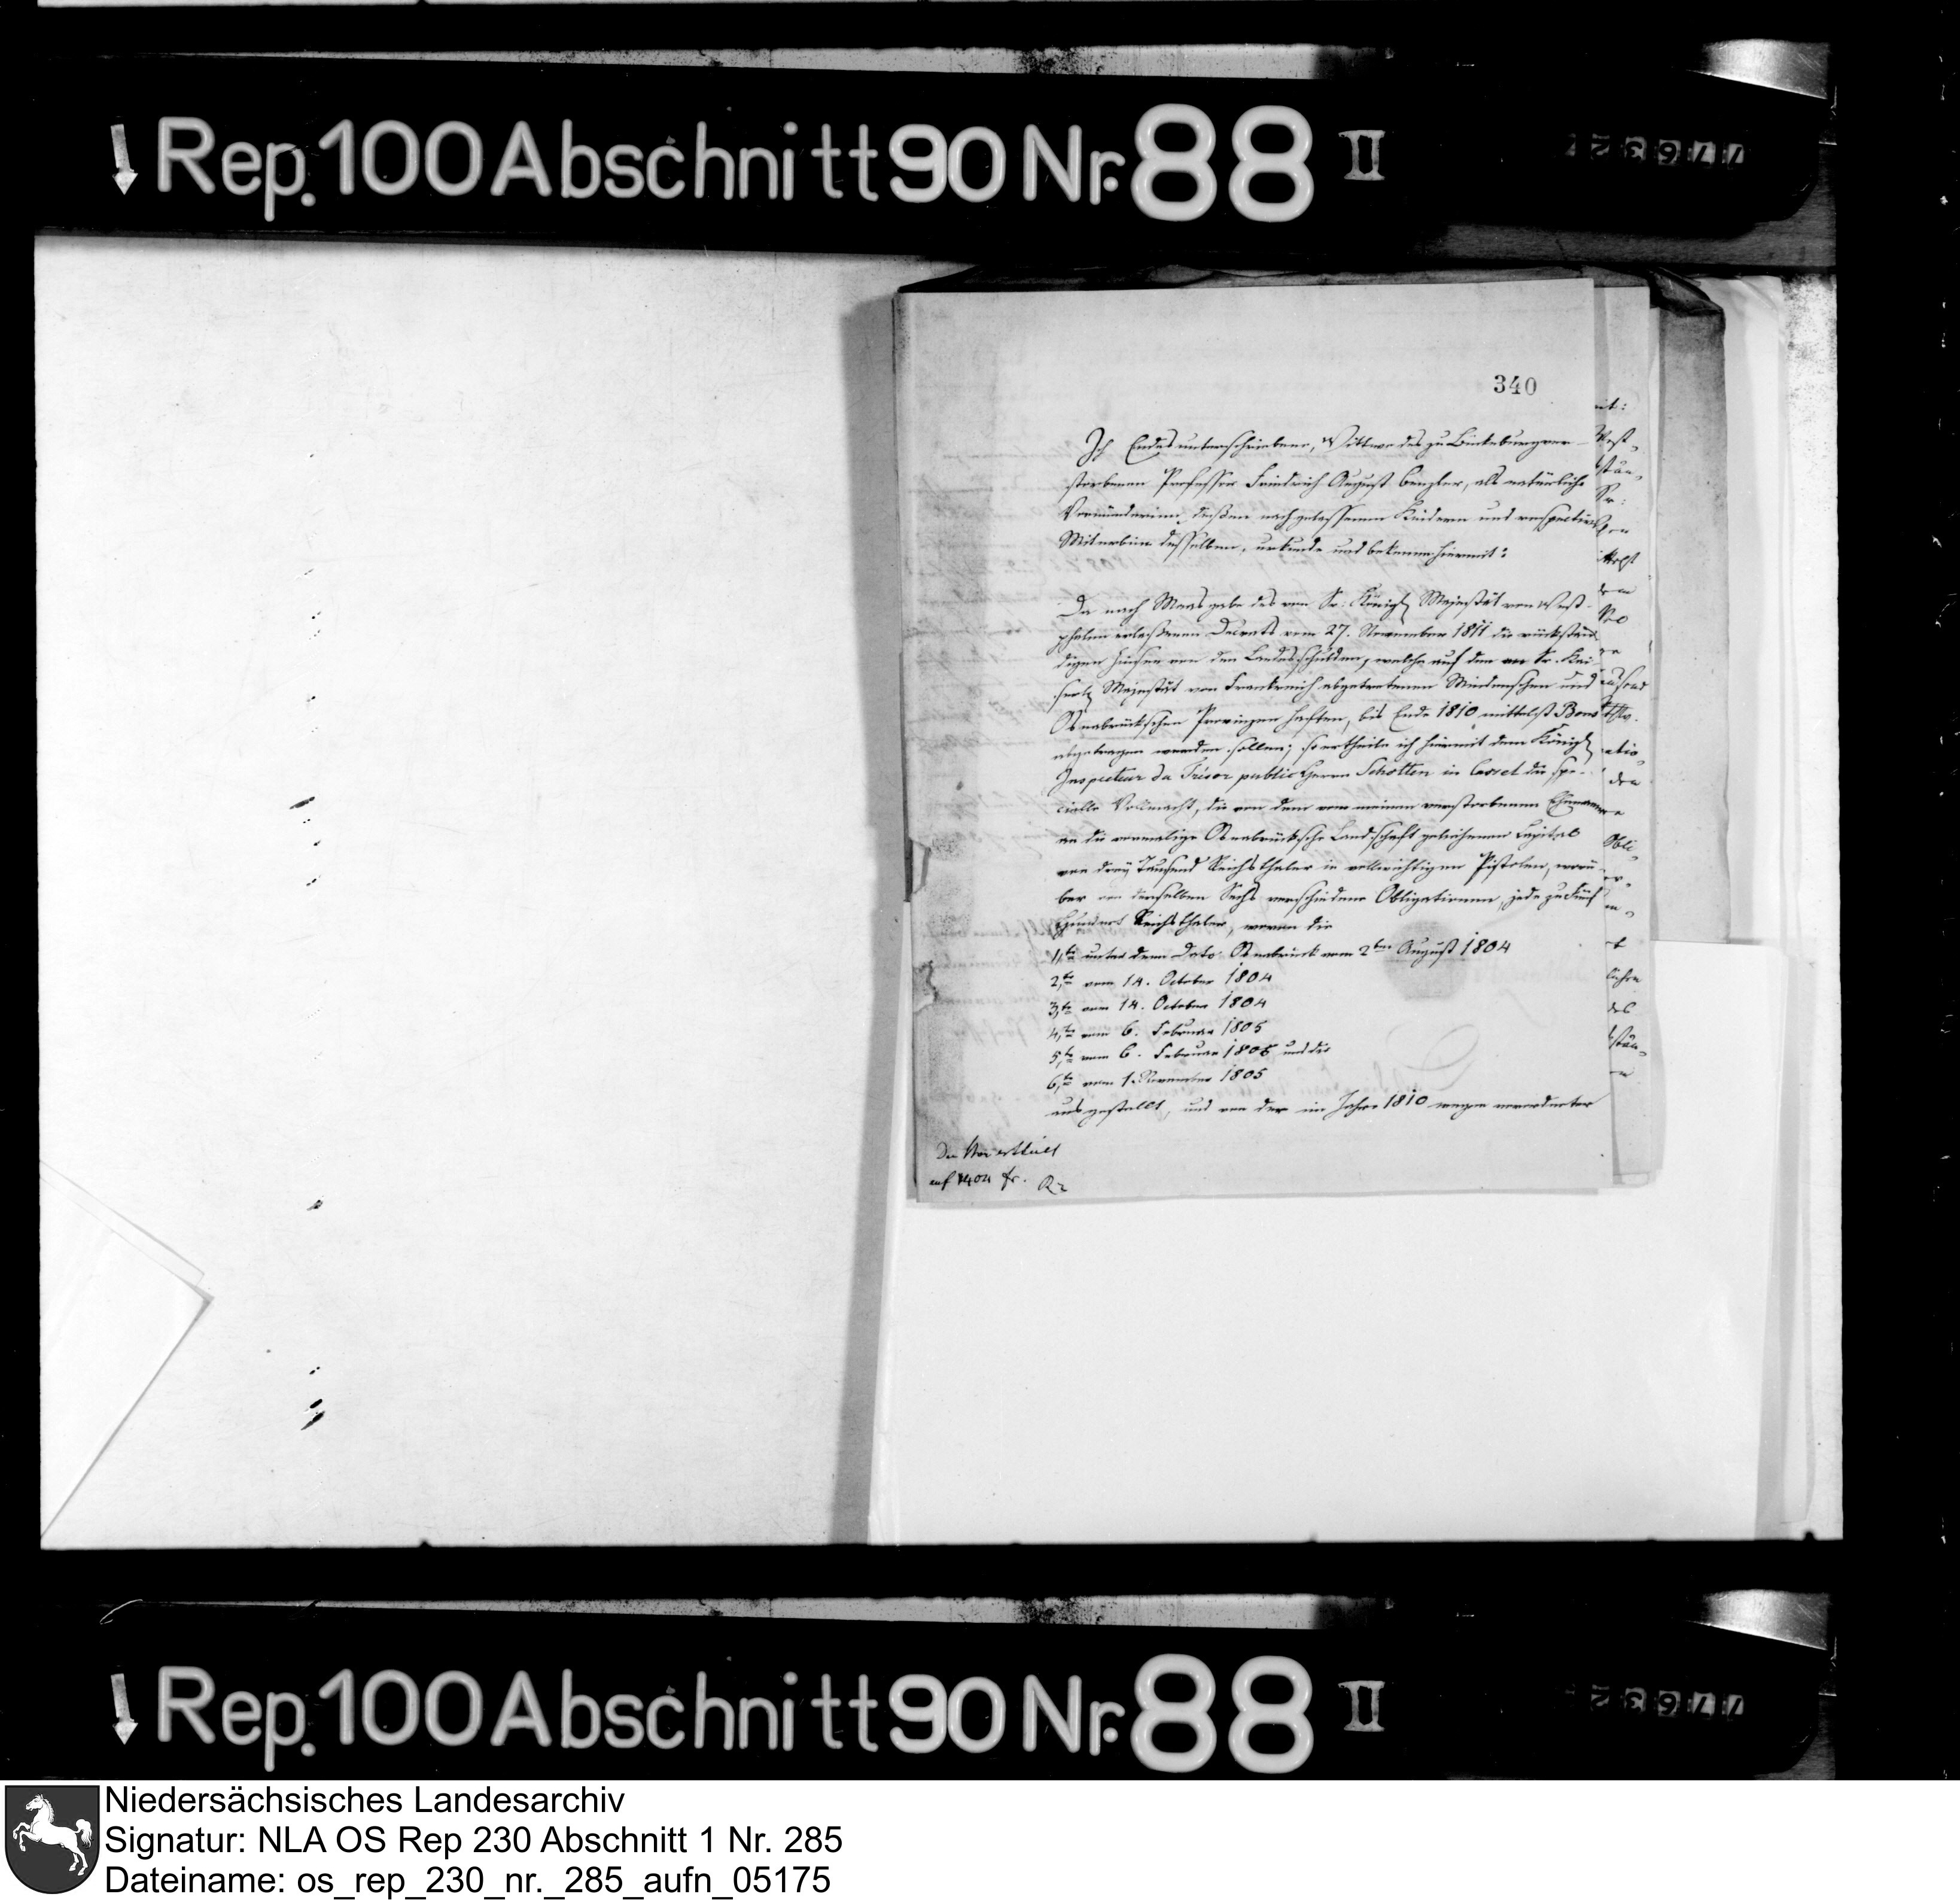 Rep. 100 Abschnitt 90 Nr. 88 II
77632
340
Ich Endes unterschriebene, Wittwe des zu Bückeburg ver-
storbenen Professor Friedrich August Benzler, als natürliche
Vormünderinn deßen nachgelassenen Kindern und respective
Miterbin desselben, urkunde und bekenne hiermit:
Da nach Maasgabe des von Sr: Königl Majestät von West-
phalen erlaßenen Decrets vom 27. November 1811 die rückstän-
digen Zinsen von den Landesschulden, welche auf den an Sr. Kai-
serl Majestät von Frankreich abgetretenen Mindenschen und
Osnabrückschen Provinzen haften, bis Ende 1810 mittelst Bons
abgetragen werden sollen; so ertheile ich hiermit dem Königl
Inspecteur du Trésor public Herrn Scholten in Cassel die spe-
cielle Vollmacht, die von dem von meinem verstorbenen Ehemanne
an die vormalige Osnabrücksche Landschaft geliehenen Capital
von drey Tausend Reichsthaler in vollwichtigen Pistolen, worü-
ber von derselben Sechs verschiedene Obligationen, jede zu Fünf
Hundert Reichsthaler, wovon die
1,te unter dem Dato Osnabrück vom 2ten August 1804
2,te vom 14. October 1804
3,te vom 14. October 1804
4,te vom 6. Februar 1805
5,te vom 6. Februar 1805 und die
6,te vom 1. November 1805
ausgestellt, und von der im Jahre 1810 wegen verordneter
auf 1404 fr.
Rep. 100 Abschnitt 90 Nr. 88 II
77632
Niedersächsisches Landesarchiv
Signatur: NLA OS Rep 230 Abschnitt 1 Nr. 285
Dateiname: os_rep_230_nr._285_aufn_05175